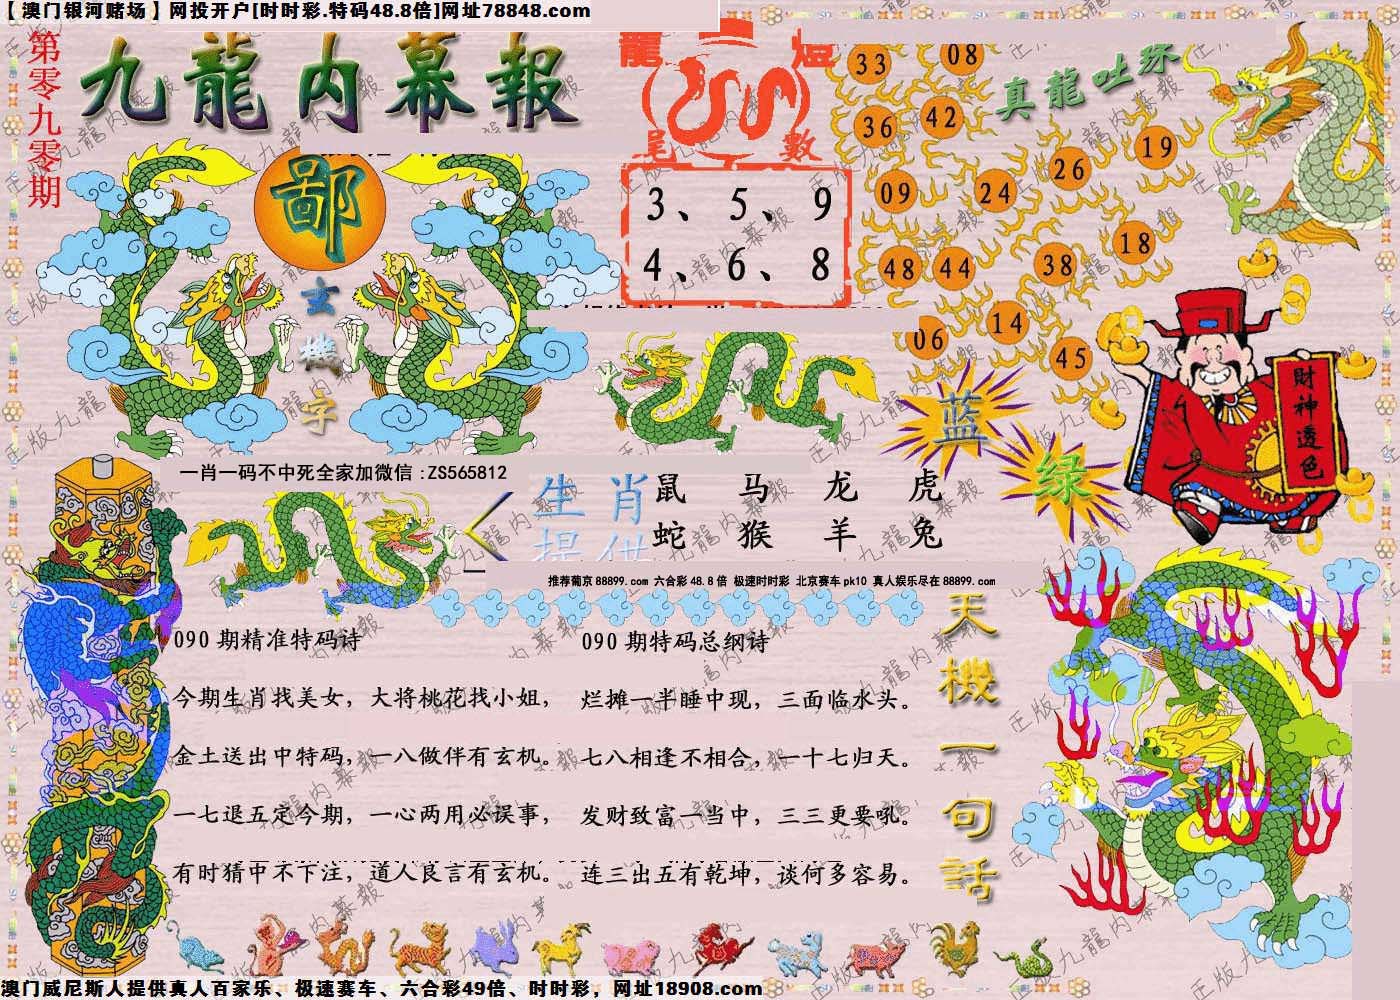 【澳门银河赌场】网投开户[时时彩.特码48.8倍]网址78848.com
第零九零期
九龍内幕報
鄙
玄機字
尾數
3、5、9
4、6、8
33
08
36
42
19
26
09
24
18
48
44
38
06
14
45
真龍吐珠
财神透色
蓝
绿
一肖一码不中死全家加微信:ZS565812
生肖
提供
鼠 马 龙 虎
蛇 猴 羊 兔
推荐葡京88899.com 六合彩48.8倍 极速时时彩 北京赛车pk10 真人娱乐尽在88899.com
天機一句話
090期精准特码诗
今期生肖找美女，大将桃花找小姐，
金土送出中特码，一八做伴有玄机。
一七退五定今期，一心两用必误事，
有时猜中不下注，道人良言有玄机。
090期特码总纲诗
烂摊一半睡中现，三面临水头。
七八相逢不相合，一十七归天。
发财致富一当中，三三更要吼。
连三出五有乾坤，谈何多容易。
正版九龍内幕報
澳门威尼斯人提供真人百家乐、极速赛车、六合彩49倍、时时彩，网址18908.com